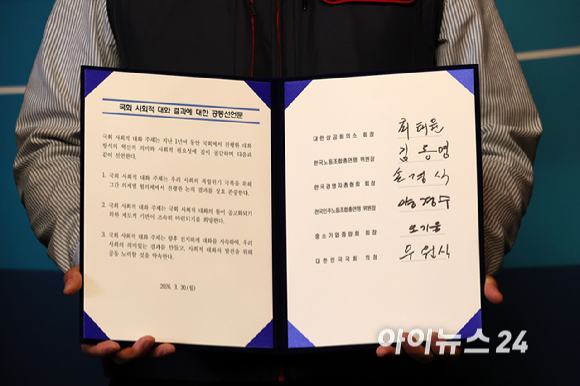 국회 사회적 대화 결과에 대한 공동선언문
국회 사회적 대화 주체는 지난 1년여 동안 국회에서 진행된 대화
방식의 혁신적 의미와 사회적 필요성에 깊이 공감하며 다음과
같이 선언한다.
1. 국회 사회적 대화 주체는 우리 사회의 복합위기 극복을 위해
그간 의제별 협의체에서 진행한 논의 결과를 상호 존중한다.
2. 국회 사회적 대화 주체는 국회 사회적 대화의 틀이 공고화되기
위한 제도적 기반이 조속히 마련되기를 희망한다.
3. 국회 사회적 대화 주체는 향후 진지하게 대화를 지속하며, 우리
사회의 의미있는 결과를 만들고, 사회적 대화의 발전을 위해
공동 노력할 것을 약속한다.
2026. 3. 30.(월)
대한상공회의소 회장 최태원
한국노동조합총연맹 위원장 김동명
한국경영자총협회 회장 손경식
전국민주노동조합총연맹 위원장 양경수
중소기업중앙회 회장 김기문
대한민국국회 의장 우원식
아이뉴스24